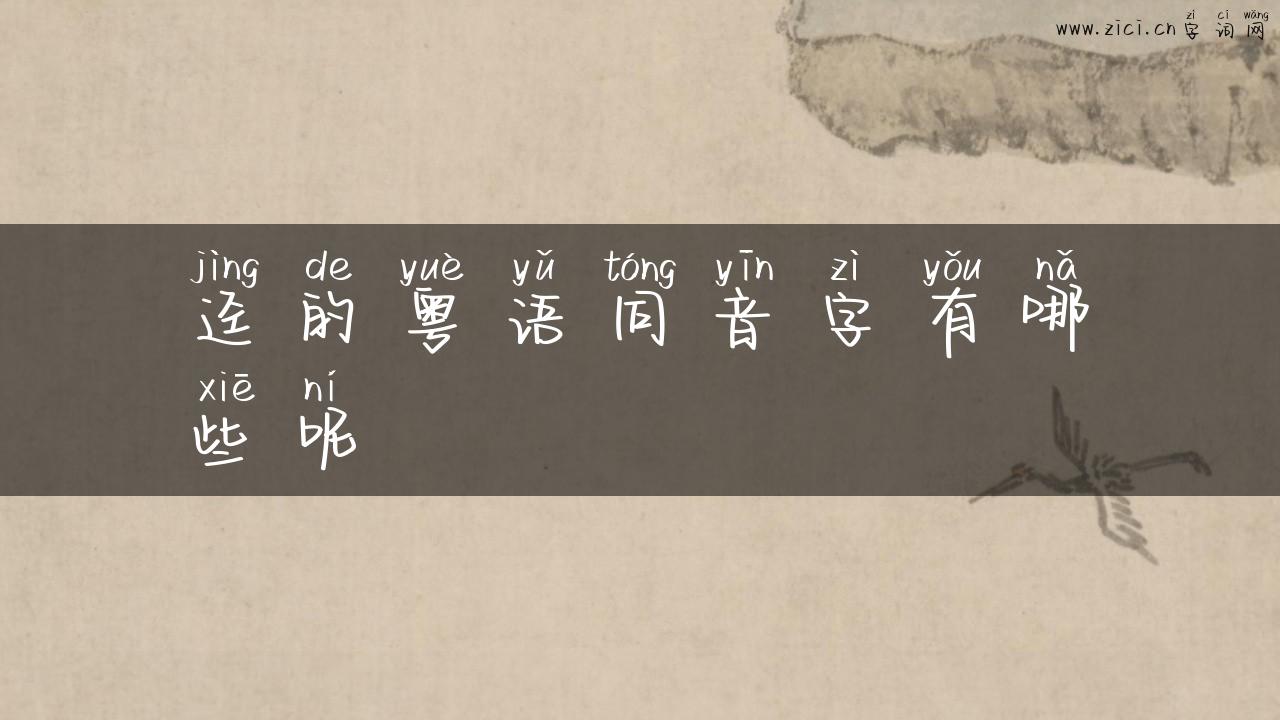 zì cí wǎng
www.zici.cn字词网
jìng de yuè yǔ tóng yīn zì yǒu nǎ
迳的粤语同音字有哪
xiē ní
些呢